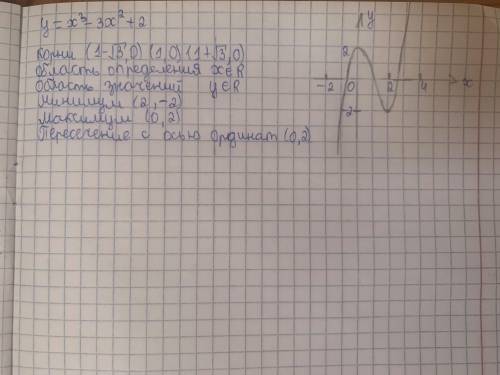 y = x³ - 3x² + 2
Корни (1-√3,0) (1,0) (1+√3,0)
Область определения x∈R
Область значений y∈R
Минимум (2,-2)
Максимум (0,2)
Пересечение с осью ординат (0,2)
y
2
-2 0 2 4 x
-2